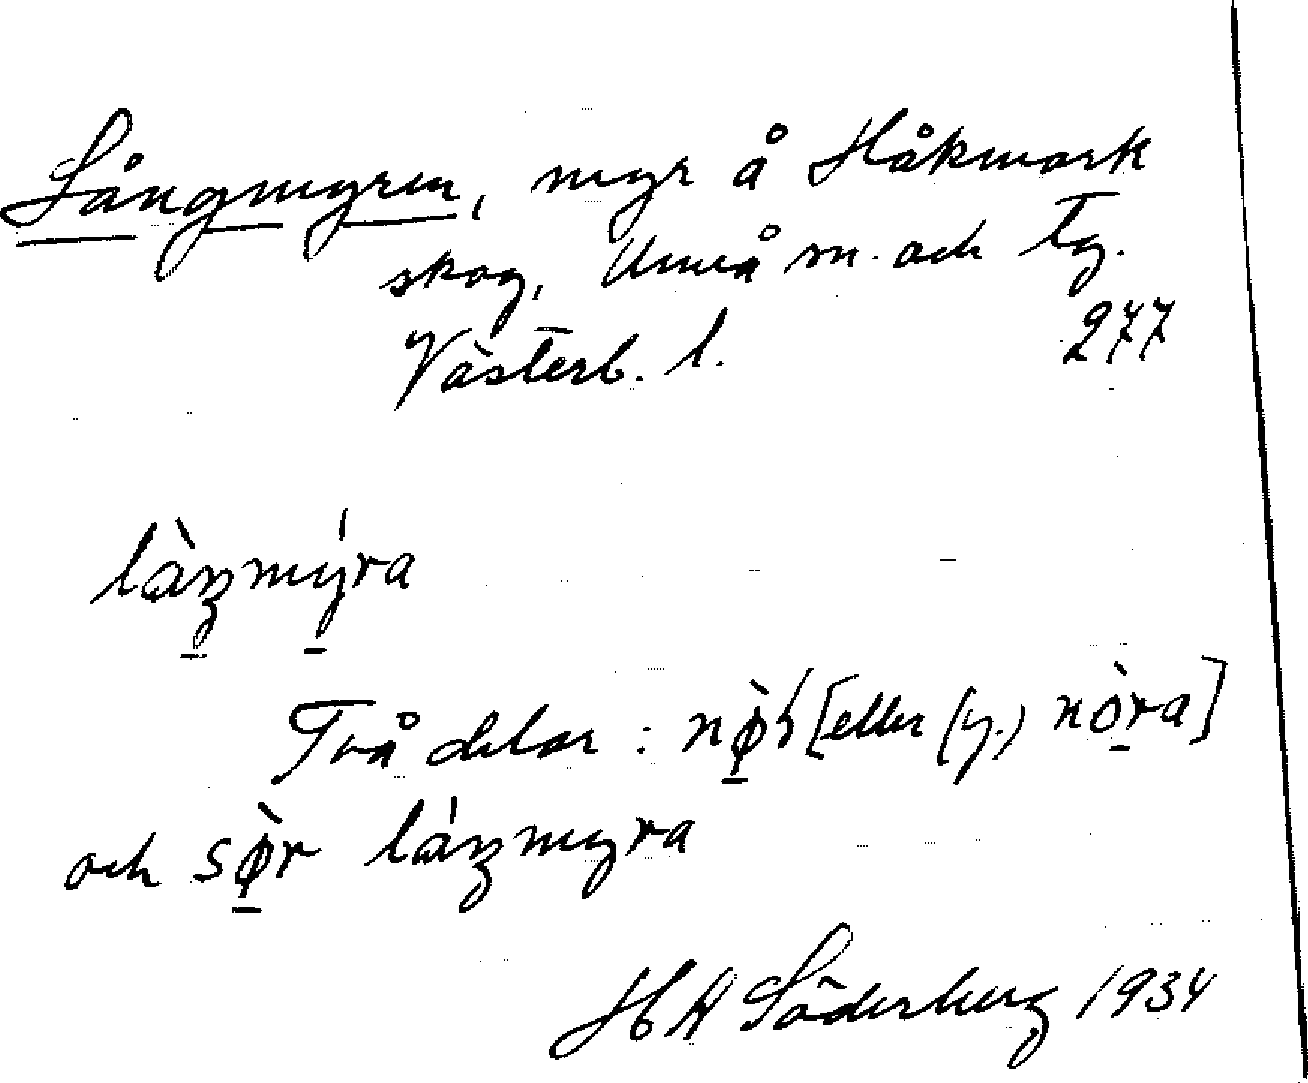 Långmyren, myr å Håkmark
skog, Umeå m. och Tg.
Västerb. l. 277
làŋmýra
Två delar: [eller (y.) nòra]
och sø̀r láŋmyra
H A Söderberg 1934